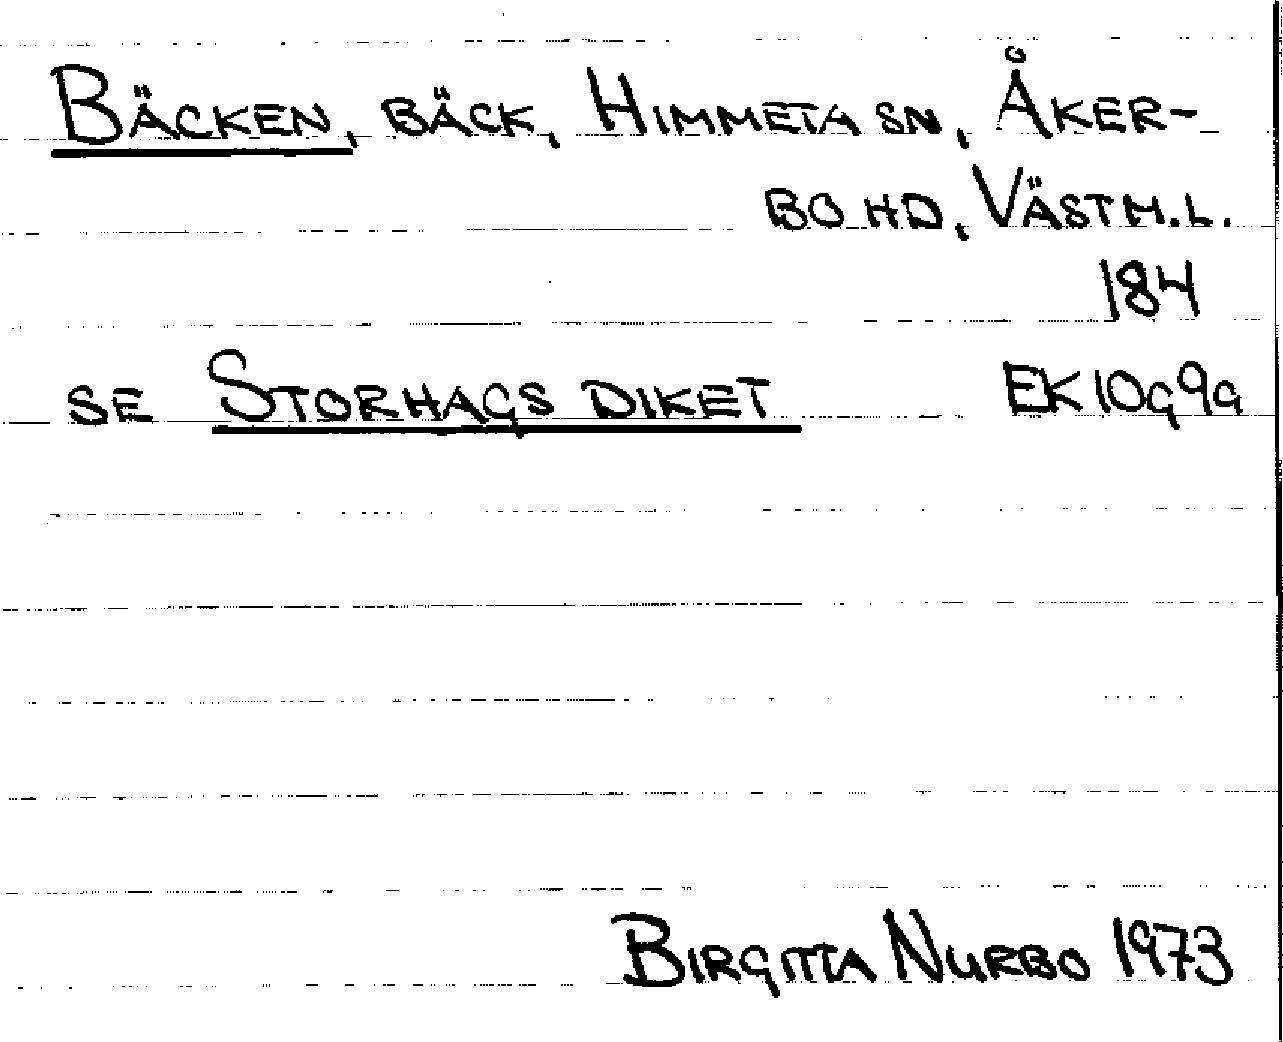 BÄCKEN, BÄCK, HIMMETA SN, ÅKER-
BO HD, VÄSTM.L.
184
SE STORHAGS DIKET EK10G9G
BIRGITTA NURBO 1973